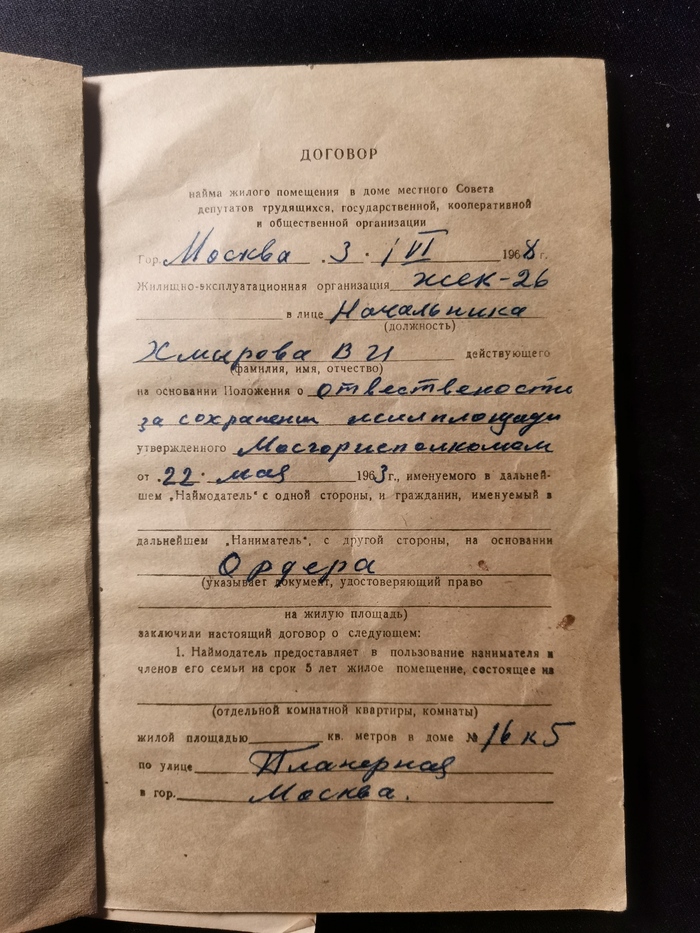 ДОГОВОР
найма жилого помещения в доме местного Совета
депутатов трудящихся, государственной, кооперативной
и общественной организации
Гор. Москва 3. VI 1968 г.
Жилищно-эксплуатационная организация ЖЭК-26
в лице Начальника
(должность)
Хмырова В И действующего
(фамилия, имя, отчество)
на основании Положения о отвествености
за сохранении жилплощади
утвержденного Мосгорисполкомам
от 22. мая 1963 г., именуемого в дальней-
шем „Наймодатель“ с одной стороны, и гражданин, именуемый в
дальнейшем „Наниматель“, с другой стороны, на основании
Ордера
(указывает документ, удостоверяющий право
на жилую площадь)
заключили настоящий договор о следующем:
1. Наймодатель предоставляет в пользование нанимателя и
членов его семья на срок 5 лет жилое помещение, состоящее из
(отдельной комнатной квартиры, комнаты)
жилой площадью кв. метров в доме № 16 к 5
по улице Планерная
в гор. Москва.